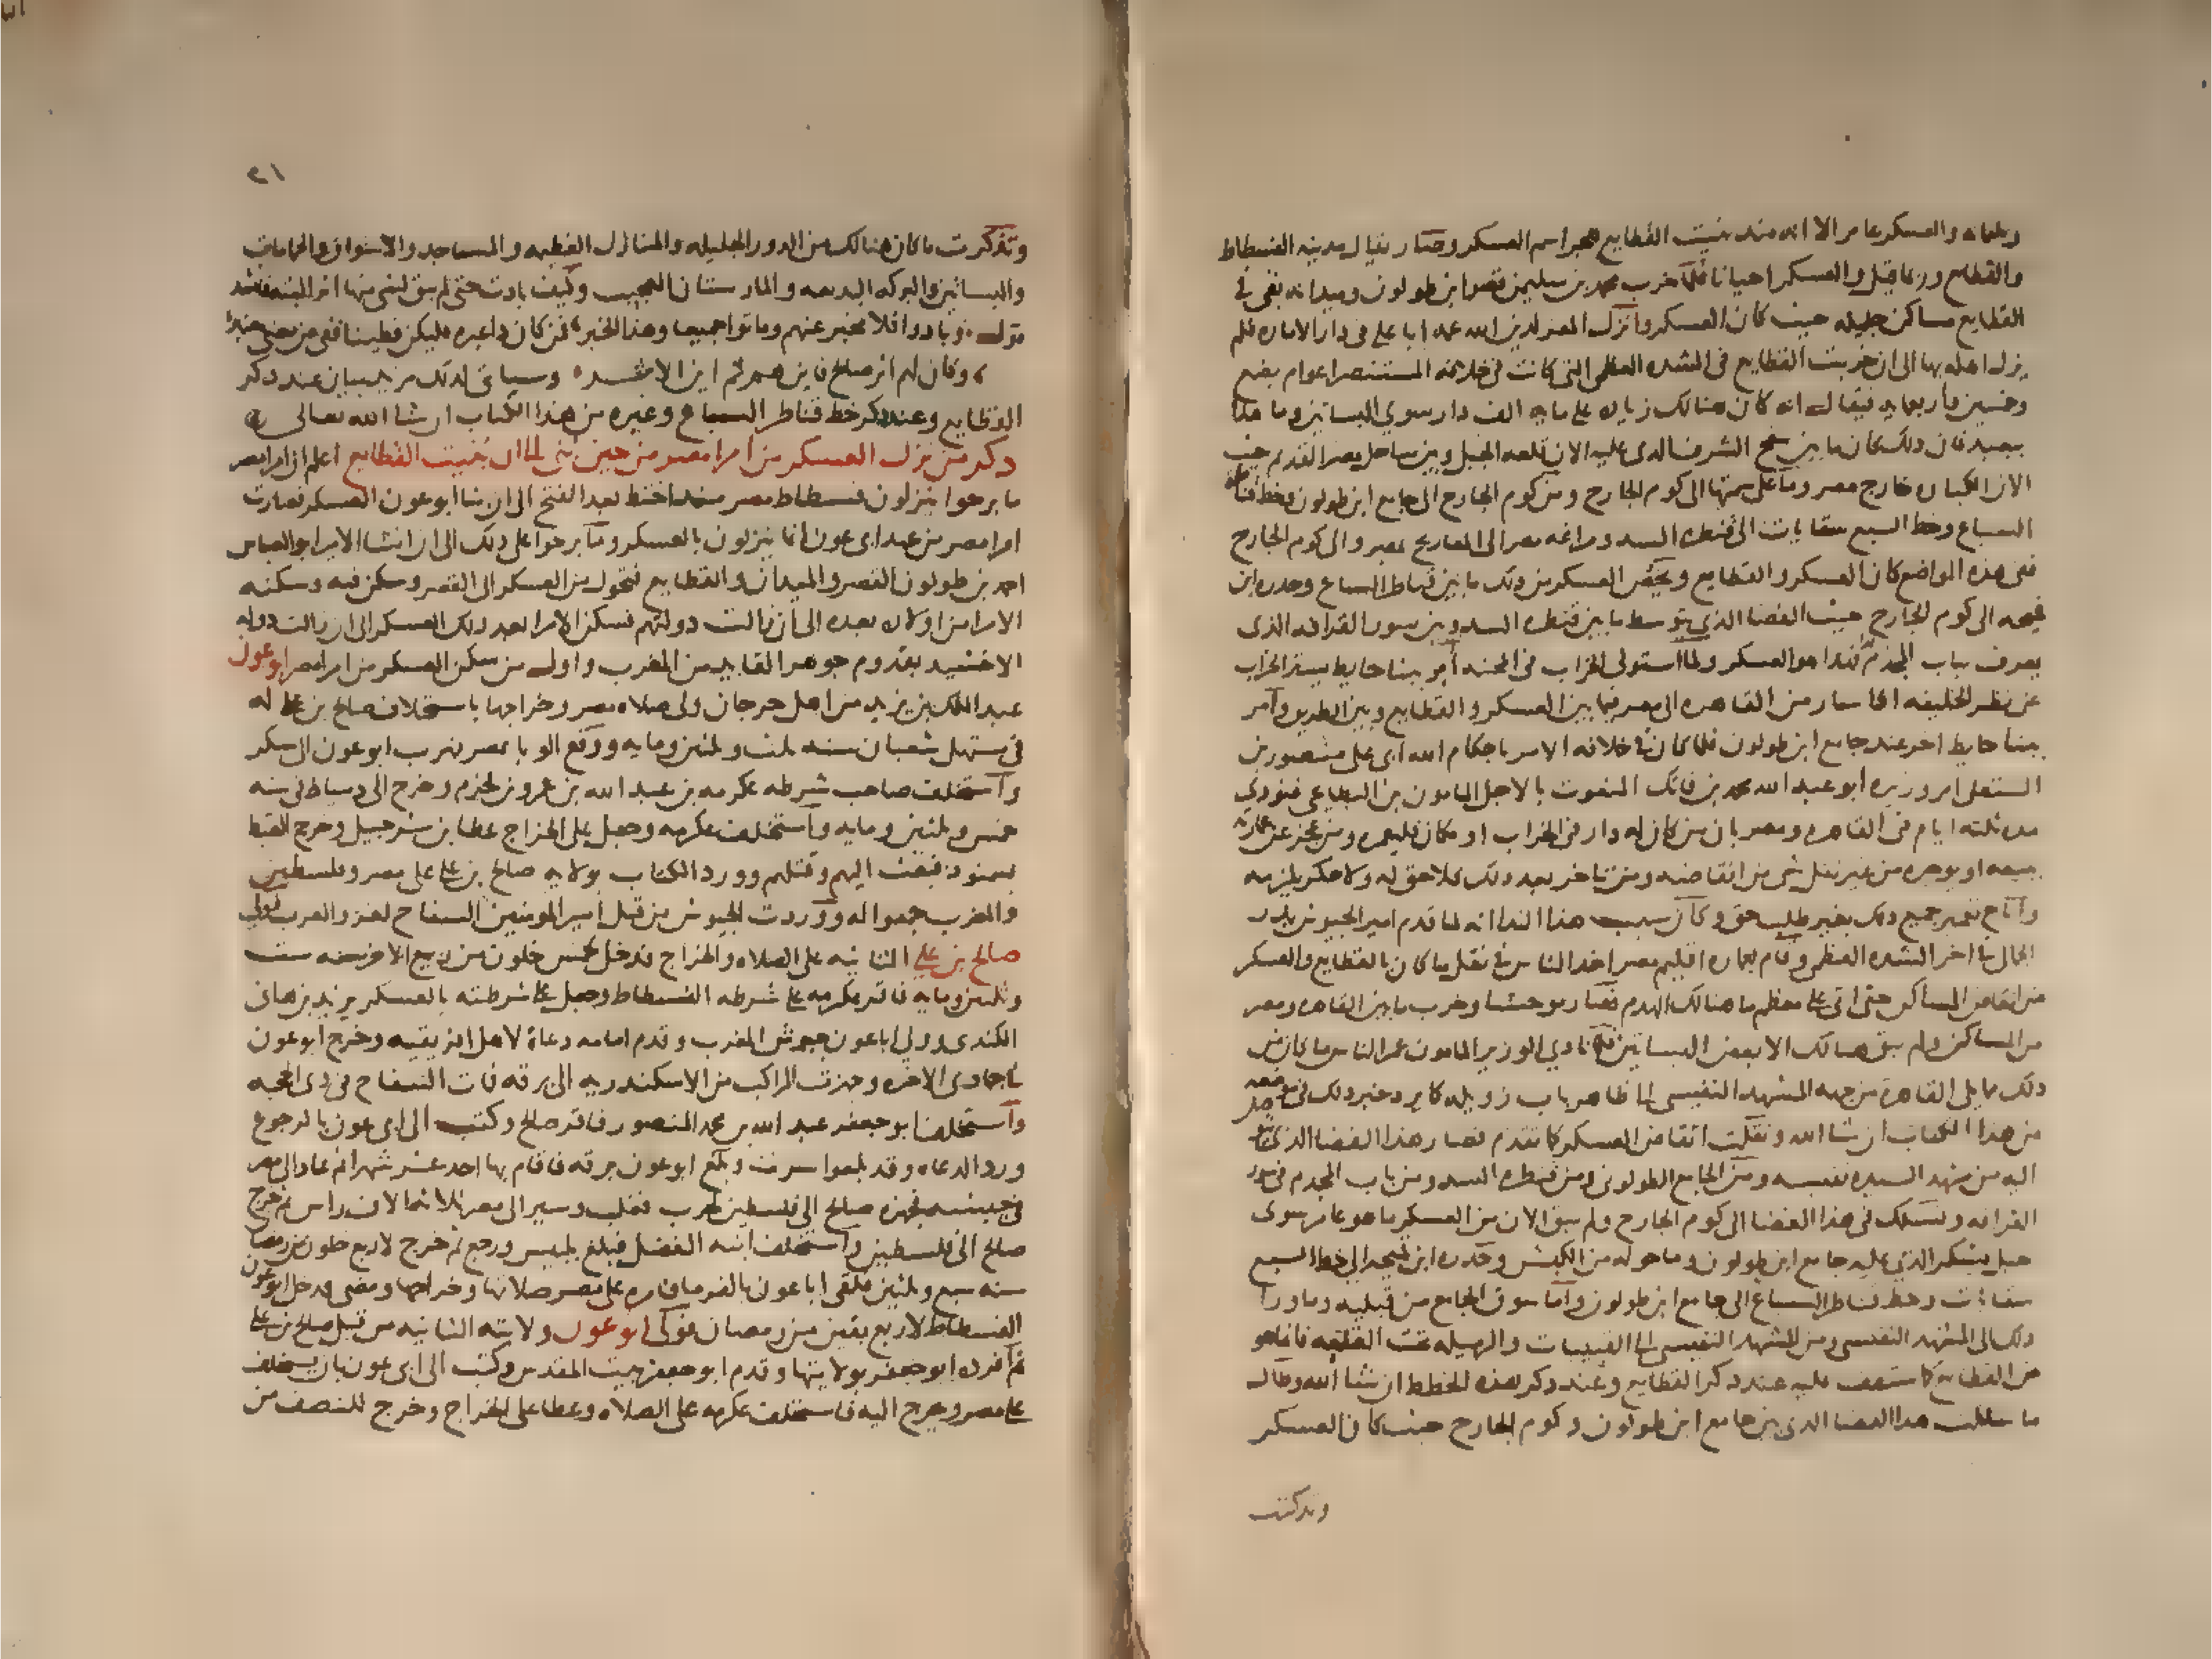 والعسكر عامر الا انه منذ بنيت القطايع هجر اسم العسكر وصار يقال مدينه الفسطاط
والقطايع وربما قيل والعسكر احيانا فلما خرب محمد بن سليمن قصر ابن طولون وميدانه بقى في
القطايع مساكن جليله حيث كان العسكر وانزل المعز لدين الله عمه ابا على فى دار الاماره فلم
يزل اهله بها الى ان خربت القطايع فى الشده العظمى التى كانت فى خلافه المستنصر اعوام بضع
وخمسين واربعمايه فيقال انه كان هنالك زياده على مايه الف دار سوي البساتين وما هذا
ببعيد فان ذلك كان ما بين سفح الشرف الدى عليه الان قلعه الجبل وبين ساحل مصر القديم حيث
الان الكباره خارج مصر وما على سمتها الى كوم الجارح ومن كوم الجارح الى جامع ابن طولون وخط قناطر
السباع وخط السبع سقايات الى قنطره السد ومراغه مصر الى المعاريج بمصر والى كوم الجارح
ففى هذه المواضع كان العسكر والقطايع ويخص العسكر من ذلك ما بين قناطر السباع وحدره ابن
قميحه الى كوم الجارح حيث الفضا الذي يتوسط ما بين قنطره السد وبين سور القرافه الذى
يعرف بباب المجذم فهذا هو العسكر ولما استولى الخراب فى المحنه امر ببنا حايط يستر الخراب
عن نظر الخليفه اذا سار من القاهره الى مصر فيما بين العسكر والقطايع وبين الطريق وامر
ببنا حايط اخر عند جامع ابن طولون فلما كان فى خلافه الامر باحكام الله ابى على منصور بن
المستعلى امر وزيره ابو عبد الله محمد بن فاتك المنعوت بالاجل المامون بن البطايحى فنودي
مده ثلثه ايام فى القاهره ومصر بان من كان له دار فى الخراب او مكان فليعمره ومن عجز عن عمارته
يبيعه او يوجره من غير نقل شى من انقاضه ومن تاخر بعد ذلك فلا حق له ولا حكر يلزمه
واباح تعمير جميع ذلك بغير طلب حق وكان سبب هذا الندا انه لما قدم امير الجيوش بدر
الجمالى فى اخر الشده العظمى وقام بعماره اقليم مصر اخذ الناس فى نقل ما كان بالقطايع والعسكر
من انقاض المساكن حتى اتى على معظم ما هنالك الهدم فصار موحشا وخرب ما بين القاهره ومصر
من المساكن ولم يبق هنالك الا بعض البساتين فلما نادي الوزير المامون عمر الناس ما كان من
ذلك مما يلى القاهرة من جهه المشهد النفيسى الى ظاهر باب زويله كما يرد خبر ذلك فى موضعه
من هذا الكتاب ان شا الله ونقلت انقاض العسكر كما تقدم فصار هذا الفضا الذى
اليه من مشهد السيده نفيسه ومن الجامع الطولونى ومن قنطره السد ومن باب المجدم فى سور
القرافه ويسلك فى هذا الفضا الى كوم الجارح ولم يبق الان من العسكر ما هو عامر سوى
جبل يشكر الذي عليه جامع ابن طولون وما حوله من الكبش وحدره ابن قميحه الى خط السبع
سقايات وخط قناطر السباع الى جامع ابن طولون واما سوق الجامع من قبليه وما ورا
ذلك الى المشهد النفيسى ومن المشهد النفيسى الى القبيبات والرميله تحت القلعه فانما هو
من القطايع كما ستقف عليه عند ذكر القطايع وعند ذكر هذه الخطط ان شا الله وطال
ما سلكت هذا الفضا الدى بين جامع ابن طولون وكوم الجارح حيث كان العسكر
وتذكرت
٢١
وتذكرت ما كان هنالك من الدور الجليله والمنازل العظيمه والمساجد والاسواق والحمامات
والبساتين والبركه البديعه والمارستان العجيب وكيف بادت حتى لم يبق لشى منها اثر البته
وبادوا فلا مخبر عنهم وماتوا جميعا وهذا الخبر فمن كان ذا عبره فليكن فطينا ففى من مضى معتبر
وكان لهم اثر صالح فاين هم ثم اين الاثر وسياتى لذلك مزيد بيان عند ذكر
القطايع وعند ذكر خط قناطر السباع وغيره من هذا الكتاب ان شا الله تعالى
ذكر من نزل العسكر من امرا مصر من حين بنى الى ان بنيت القطايع اعلم ان امرا مصر
ما برحوا ينزلون فسطاط مصر منذ اختط بعد الفتح الى ان بنا ابو عون العسكر فصارت
امرا مصر من عهد ابى عون انما ينزلون بالعسكر وما برحوا على ذلك الى ان انشا الامير ابو العباس
احمد بن طولون القصر والميدان والقطايع فتحول من العسكر الى القصر وسكن فيه وسكنه
الامرا من اولاده بعده الى ان زالت دولتهم فسكن الامرا بعد ذلك العسكر الى ان زالت دوله
الاخشيد بقدوم جوهر القايد من المغرب واول من سكن العسكر من امرا مصر ابو عون
عبد الملك بن يزيد من اهل جرجان ولى صلاه مصر وخراجها باستخلاف صالح بن على له
فى مستهل شعبان سنه ثلث وثلثين ومايه ووقع الوبا بمصر فهرب ابو عون الى يشكر
واستخلف صاحب شرطه عكرمه بن عبد الله بن عمرو بن قحزم وخرج الى دمياط فى سنه
خمس وثلثين ومايه واستخلف عكرمه وجعل على الخراج عطا بن شرحبيل وخرج القبط
بسمنود فبعث اليهم وقتلهم وورد الكتاب بولايه صالح بن على على مصر وفلسطين
والمغرب جمعوا له ووردت الجيوش من قبل امير المومنين السفاح لغزو المغرب فولى
صالح بن على الثانيه على الصلاه والخراج فدخل لخمس خلون من ربيع الاخر سنه ست
وثلثين ومايه فاقر عكرمه على شرطه الفسطاط وجعل على شرطته بالعسكر يزيد بن هانى
الكندى وولى ابا عون جيوش المغرب وقدم امامه دعاة لاهل افريقيه وخرج ابو عون
فى جمادى الاخره وجهزت المراكب من الاسكندريه الى برقه فمات السفاح فى ذى الحجه
واستخلف ابو جعفر عبد الله بن محمد المنصور فاقر صالح وكتب الى ابى عون بالرجوع
ورد الدعاه وقد بلغوا سرت وبلغ ابو عون برقه فاقام بها احد عشر شهرا ثم عاد الى مصر
فى جيشه فجهزه صالح الى فلسطين لحرب فغلب وسير الى مصر ثلاثه الاف راس ثم خرج
صالح الى فلسطين واستخلف ابنه الفضل فبلغ بلبيس ورجع ثم خرج لاربع خلون من رمضان
سنه سبع وثلثين فلقى ابا عون بالفرما فامره على مصر صلاتها وخراجها ومضى فدخل ابو عون
الفسطاط لاربع بقين من رمضان فولى ابو عون ولايته الثانيه من قبل صالح بن على
ثم افرده ابو جعفر بولايتها وقدم ابو جعفر بيت المقدس وكتب الى ابى عون بان يستخلف
على مصر ويخرج اليه فاستخلف عكرمه على الصلاه وعطا على الخراج وخرج للنصف من